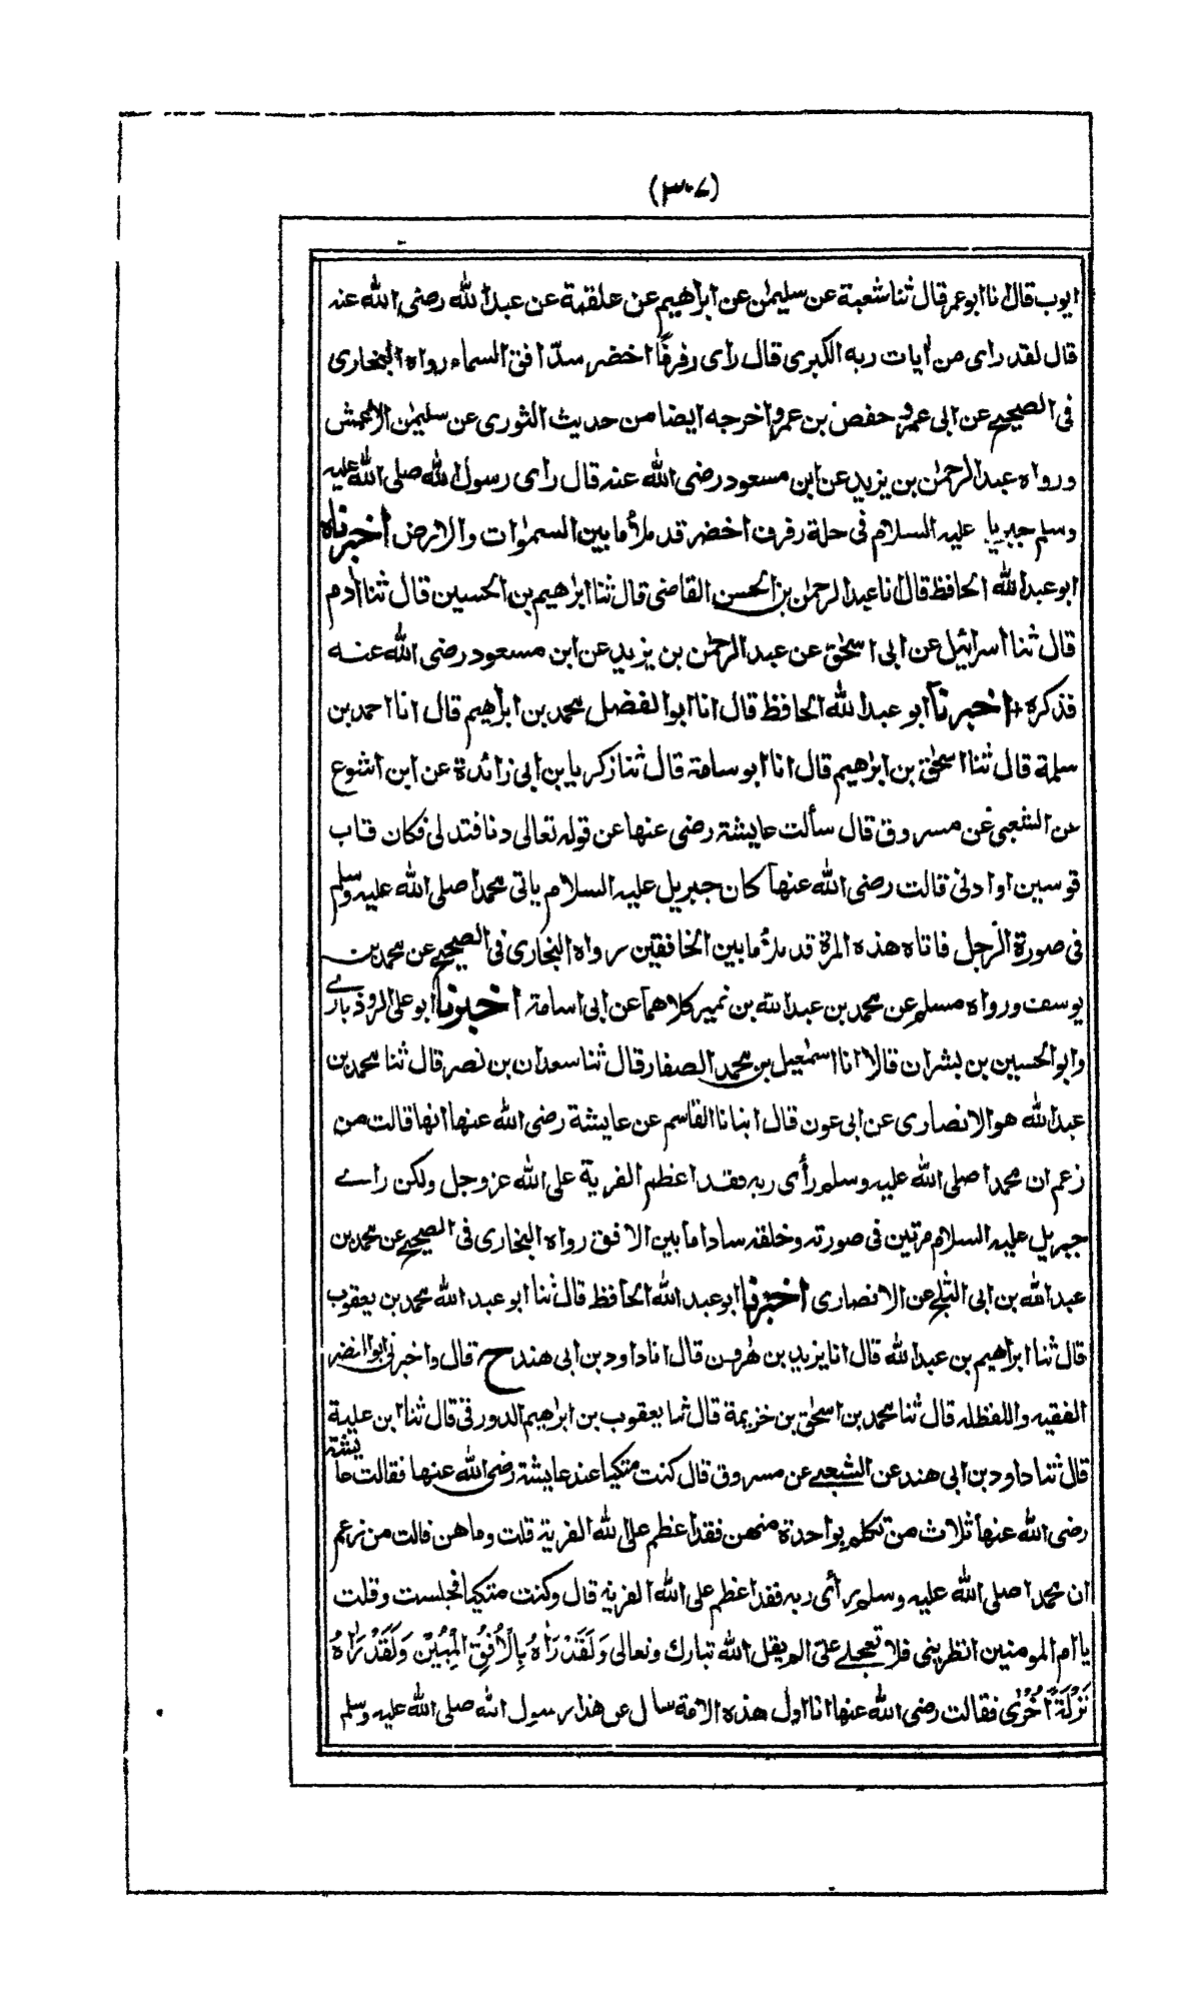 (٣٠٧)
ايوب قال انا ابو عمر قال ثنا شعبة عن سليمٰن عن ابراهيم عن علقمة عن عبد الله رضى الله عنه
قال لقد راى من اٰيات ربه الكبرى قال راى رفرفًا اخضر سدّ افق السماء رواه البخارى
فى الصحيح عن ابى عمرو حفص بن عمر واخرجه ايضا من حديث الثورى عن سليمٰن الاعمش
ورواه عبد الرحمٰن بن يزيد عن ابن مسعود رضى الله عنه قال راى رسول الله صلى الله عليه
وسلم جبريل عليه السلام فى حلة رفرف اخضر قد ملأ ما بين السمٰوات والارض اخبرناه
ابو عبد الله الحافظ قال انا عبد الرحمٰن بن الحسن القاضى قال ثنا ابرٰهيم بن الحسين قال ثنا اٰدم
قال ثنا اسرائيل عن ابى اسحٰق عن عبد الرحمٰن بن يزيد عن ابن مسعود رضى الله عنه
فذكره + اخبرنا ابو عبد الله الحافظ قال انا ابو الفضل محمد بن ابرٰهيم قال انا احمد بن
سلمة قال ثنا اسحٰق بن ابرٰهيم قال انا ابو سامة قال ثنا زكريا بن ابى زائدة عن ابن اشوع
عن الشعبى عن مسروق قال سألت عايشة رضى عنها عن قوله تعالى دنا فتدلى فكان قاب
قوسين او ادنى قالت رضى الله عنها كان جبريل عليه السلام ياتى محمدا صلى الله عليه وسلم
فى صورة الرجل فاتاه هذه المرة قد ملأ ما بين الخافقين رواه البخارى فى الصحيح عن محمد بن
يوسف ورواه مسلم عن محمد بن عبد الله بن نمير كلاهما عن ابى اسامة اخبرنا ابو على الروذبارى
وابو الحسين بن بشران قالا انا اسمٰعيل بن محمد الصفار قال ثنا سعدان بن نصر قال ثنا محمد بن
عبد الله هو الانصارى عن ابى عون قال انبانا القاسم عن عايشة رضى الله عنها انها قالت من
زعم ان محمدا صلى الله عليه وسلم رأى ربه فقد اعظم الفرية على الله عز وجل ولكن راے
جبريل عليه السلام مرتين فى صورته وخلقه سادا ما بين الافق رواه البخارى فى الصحيح عن محمد بن
عبد الله بن ابى الثلج عن الانصارى اخبرنا ابو عبد الله الحافظ قال ثنا ابو عبد الله محمد بن يعقوب
قال ثنا ابراهيم بن عبد الله قال انا يزيد بن هٰرون قال انا داود بن ابى هند ح قال واخبرنى ابو النضر
الفقيه واللفظ له قال ثنا محمد بن اسحٰق بن خزيمة قال ثنا يعقوب بن ابرٰهيم الدورقى قال ثنا ابن علية
قال ثنا داود بن ابى هند عن الشعبے عن مسروق قال كنت متكيا عند عايشة رضى الله عنها فقالت عايشة
رضى الله عنها ثلاث من تكلم بواحدة منهن فقد اعظم على الله الفرية قلت وما هن قالت من زعم
ان محمدا صلى الله عليه وسلم رأى ربه فقد اعظم على الله الفرية قال وكنت متكيا فجلست وقلت
يا ام المومنين انظرينى فلا تعجلے علىّ الم يقل الله تبارك وتعالى وَلَقَدْ رَاٰهُ بِالْاُفُقِ الْمُبِيْنِ وَلَقَدْ رَاٰهُ
نَزْلَةً اُخْرٰى فقالت رضى الله عنها انا اول هذه الامة سال عن هذا رسول الله صلى الله عليه وسلم